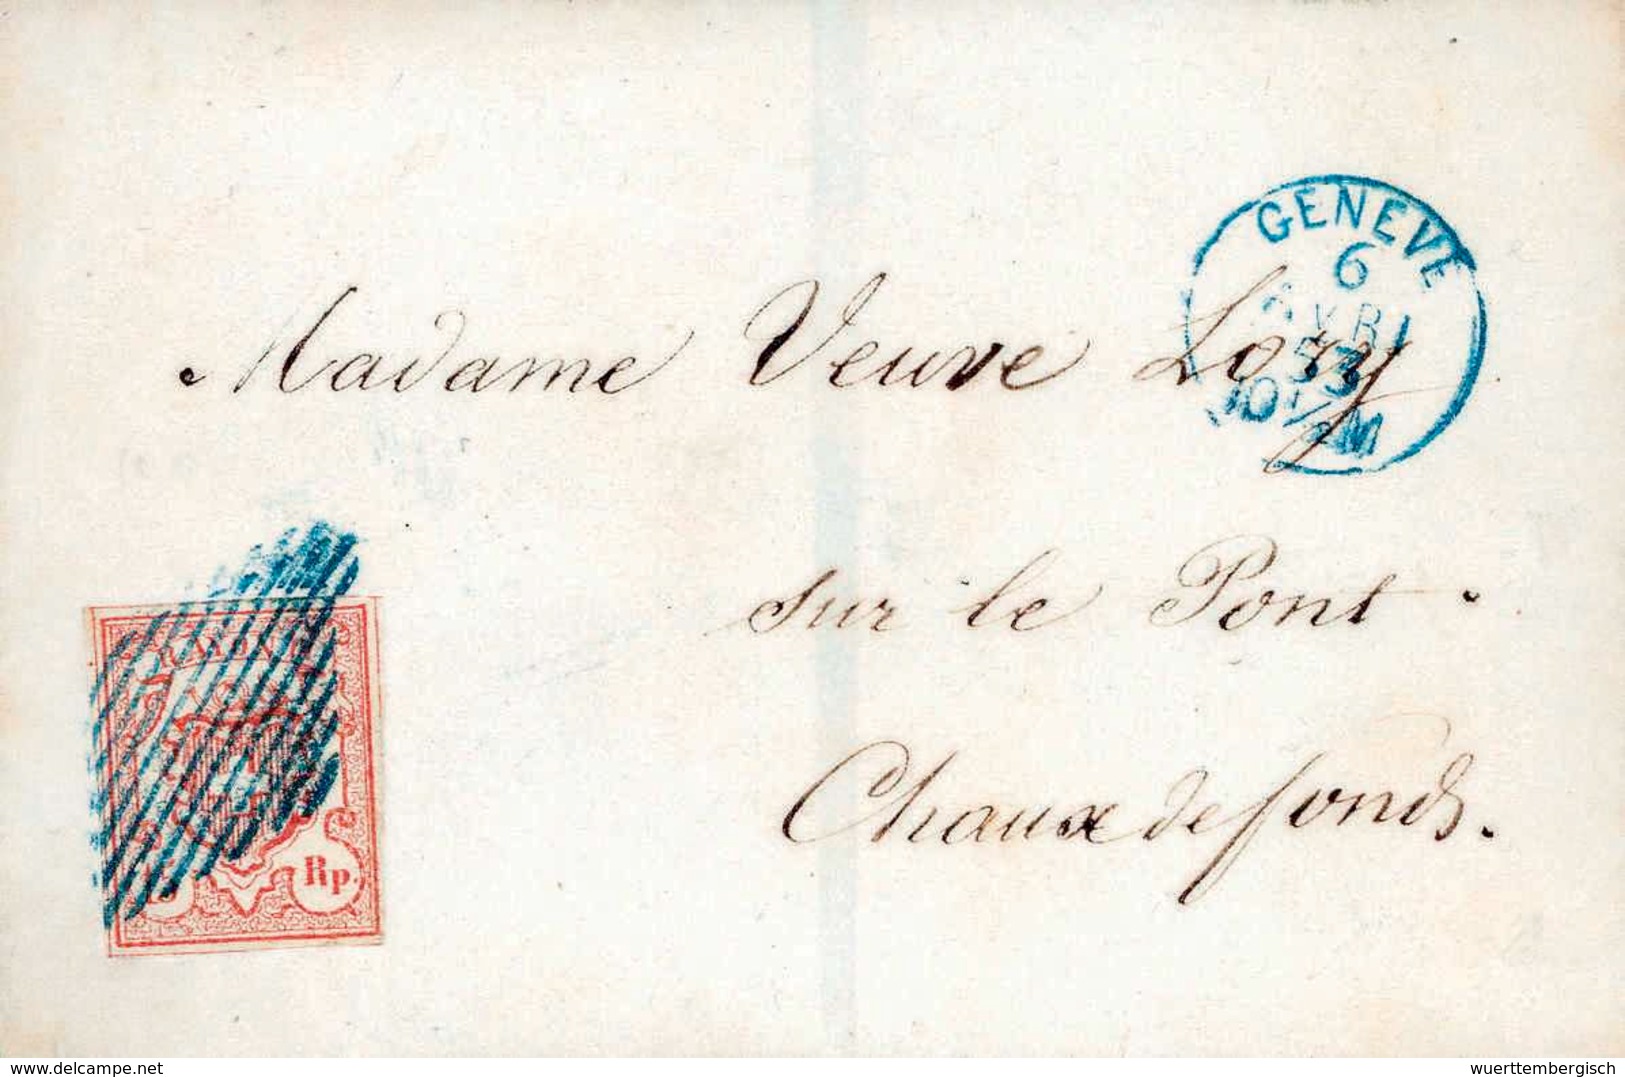 GENEVE
6
AVRI
53
10½M
Madame Veuve Lory
sur le Pont.
Chaux de fonds.
RAYON
Rp.
delcampe.net
wuerttembergisch